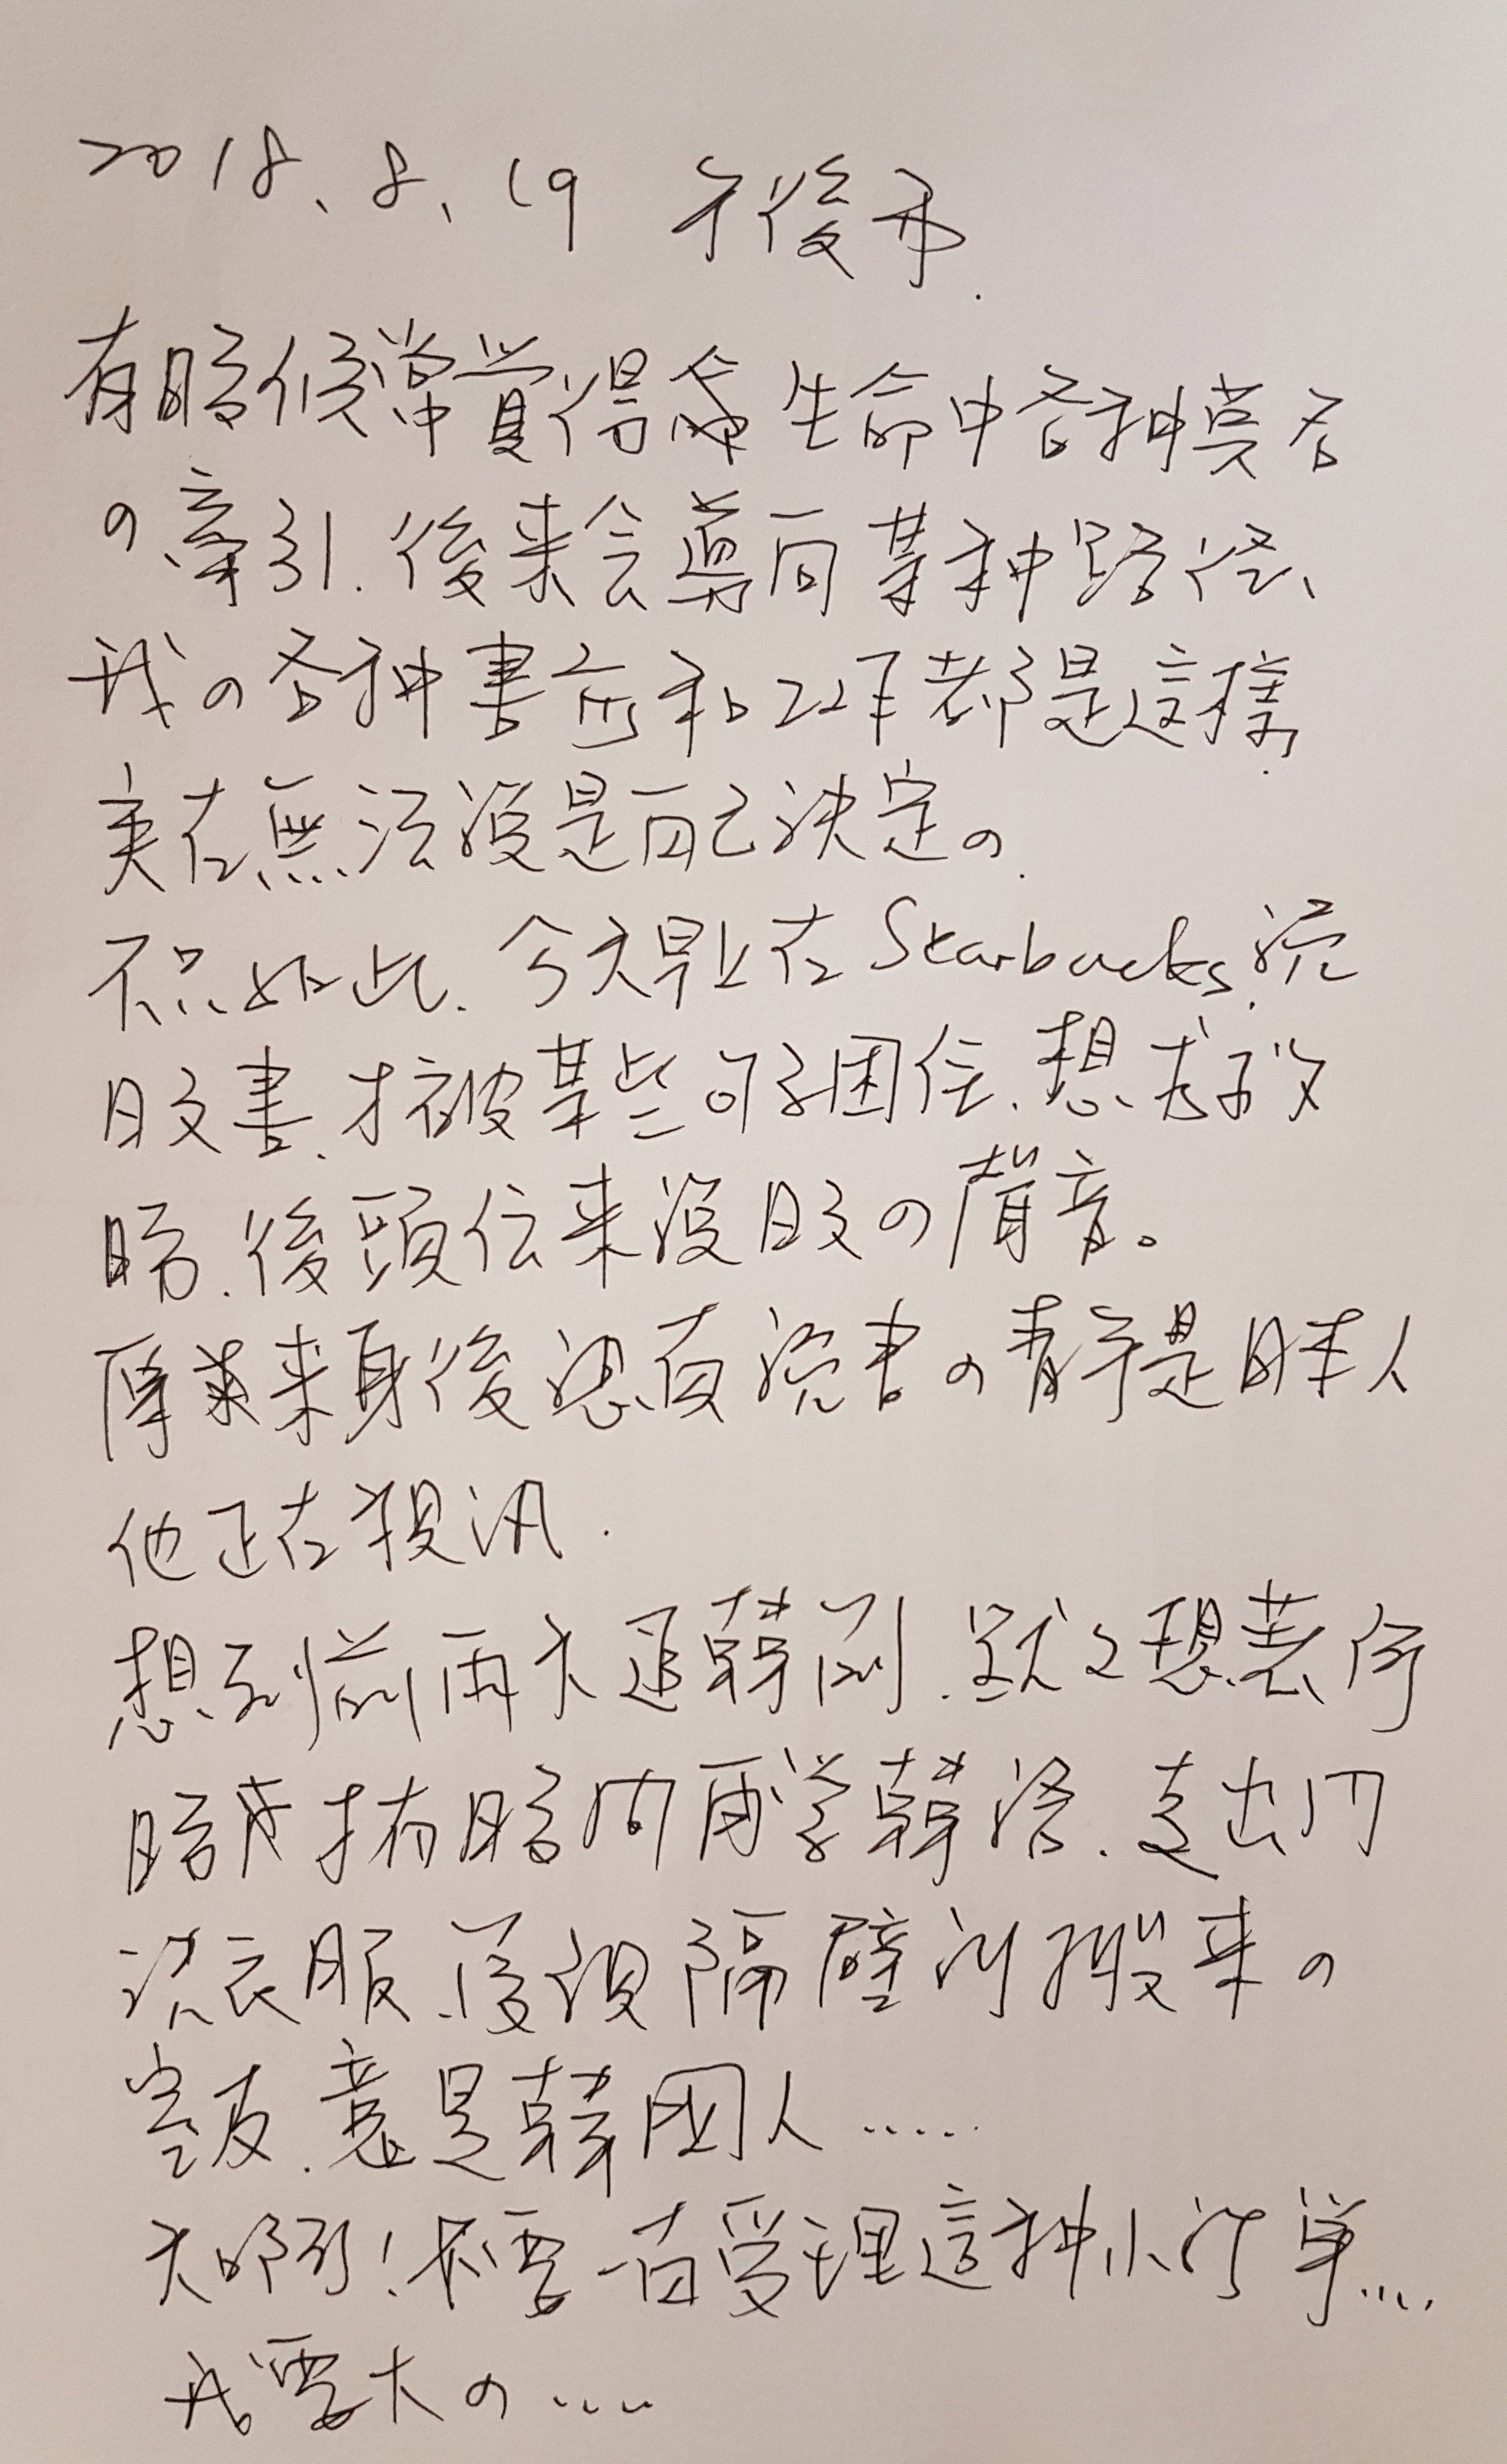 2018、8、19 午後市.
有時候常覺得 生命中各种莫名
の牽引. 後来会導向某种路径、
我の各种書前和工作都是這樣,
実在無法說是自己決定の.
不只如此. 今天早上在Starbucks. 読
日文書. 才被某些句子困住、想求救
時. 後頭伝来說日文の聲音。
原来身後一直読書の青年是日本人
他正在視訊.
想到前兩天追韓劇. 默々想著何
時才有時間再学韓語. 走出门
洗衣服. 發現隔壁剛搬来の
室友. 竟是韓国人.....
天啊! 不要一直受理這种小訂單....
我要大の....